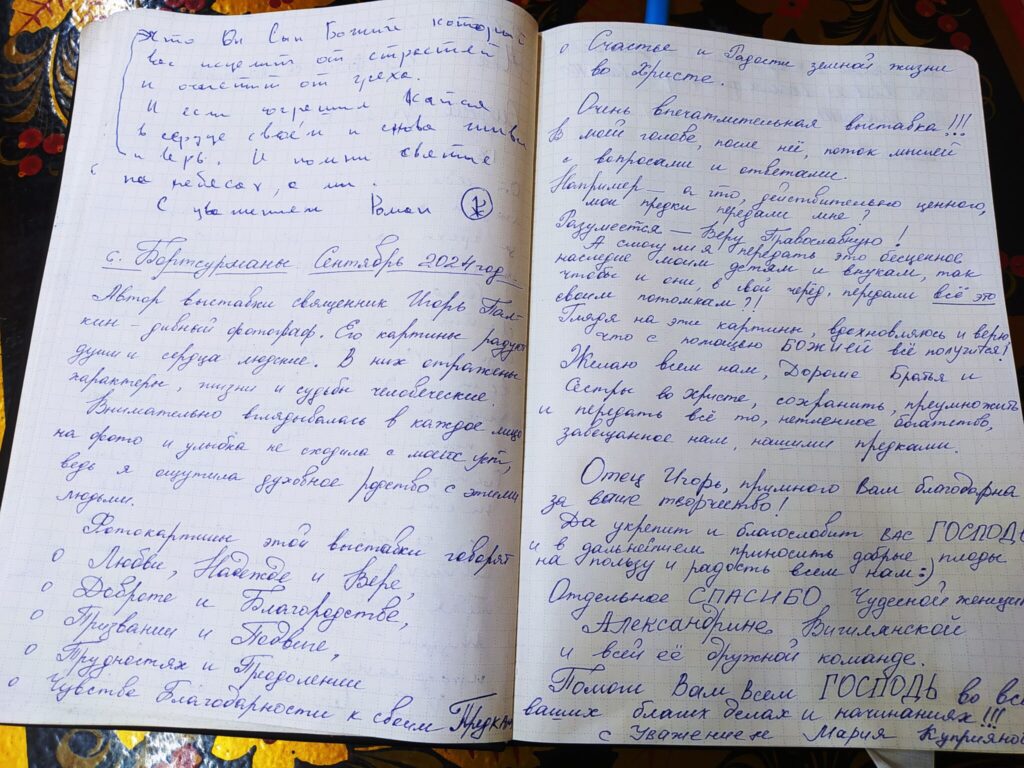 что Он Сын Божий который
вас исцелит от страстей
и очистит от греха.
И если согрешил кайся
в сердце своём и снова живи
и верь. И помни святые
на небесах, а мы.
С уважением Роман
с. Бортсурманы Сентябрь 2024 год
Автор выставки священник Игорь Пал-
кин - дивный фотограф. Его картины радуют
души и сердца людские. В них отражены
характеры, жизни и судьбы человеческие.
Внимательно вглядывалась в каждое лицо
на фото и улыбка не сходила с моих уст,
ведь я ощутила духовное родство с этими
людьми.
Фотокартины этой выставки говорят
о Любви, Надежде и Вере,
о Доброте и Благородстве,
о Призвании и Подвиге,
о Трудностях и Преодолении
о Чувстве Благодарности к своим Предкам
о Счастье и Радости земной жизни
во Христе.
Очень впечатлительная выставка!!!
В моей голове, после неё, поток мыслей
с вопросами и ответами.
Например — а что, действительно ценного,
мои предки передали мне?
Разумеется — Веру Православную!
А смогу ли я передать это бесценное
наследие моим детям и внукам, так
чтобы и они, в свой черёд, передали всё это
своим потомкам?!
Глядя на эти картины, вдохновляюсь и верю
что с помощью БОЖИЕЙ всё получится!
Желаю всем нам, Дорогие Братья и
Сёстры во Христе, сохранить, преумножить
и передать всё то, нетленное богатство,
завещанное нам, нашими предками.
Отец Игорь, примного Вам благодарна
за ваше творчество!
Да укрепит и благословит вас ГОСПОДЬ
и в дальнейшем приносить добрые плоды
на пользу и радость всем нам:)
Отдельное СПАСИБО Чудесной женщине
Александрине Вигилянской
и всей её дружной команде.
Помоги Вам Всем ГОСПОДЬ во всех
ваших благих делах и начинаниях!!!
с Уважением Мария Куприянов